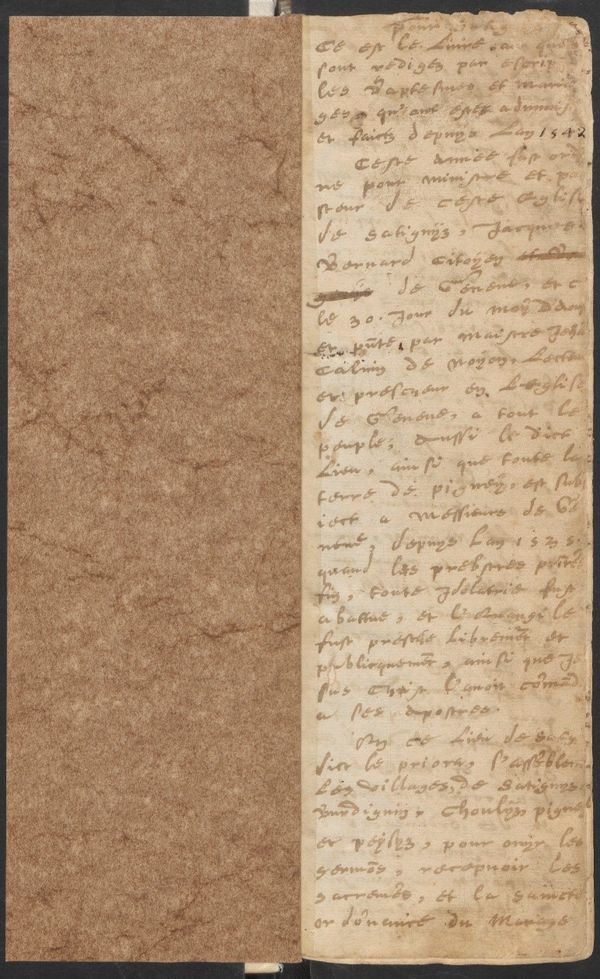 pour Satig
Ce est le Livre, au quel
sont rediges par escript
les Baptesmes et maria
ges, qu'ont estes adminis
et faictz depuys Lan 1542
Ceste Annee fust ordo
ne pour ministre et pa
steur de Ceste Eglise
de Satignyz, Jacques
Bernard Citoyen
de Geneve, et c
le 30. Jour du moy d'Aou
et pnte, par Maistre Jeha
Calvin de Noyon, Lecteur
et prescheur en L'eglise
de Geneve, a tout le
peuple, Aussi le dict
Lieu, ainsi que toute la
terre de pigney, est sub
iect a Messieurs de Ge
neve, depuys Lan 1535.
quand les prebstres prirēt
fin, toute Idolatrie fust
abattue, et L'evangile
fust presche Libremēt et
publicquemēt, ainsi que Je
sus Christ L'avoit cōmād
a ses Apostres.
En ce Lieu de Satig
dict le priora, s'assēblent
Les Villages, de Satignyz
Burdignyz, Choullyz, pigney
et peyssyz, pour ouyr les
sermōs, recepvoir Les
sacremēs, et la saincte
ordōnance du Mariage